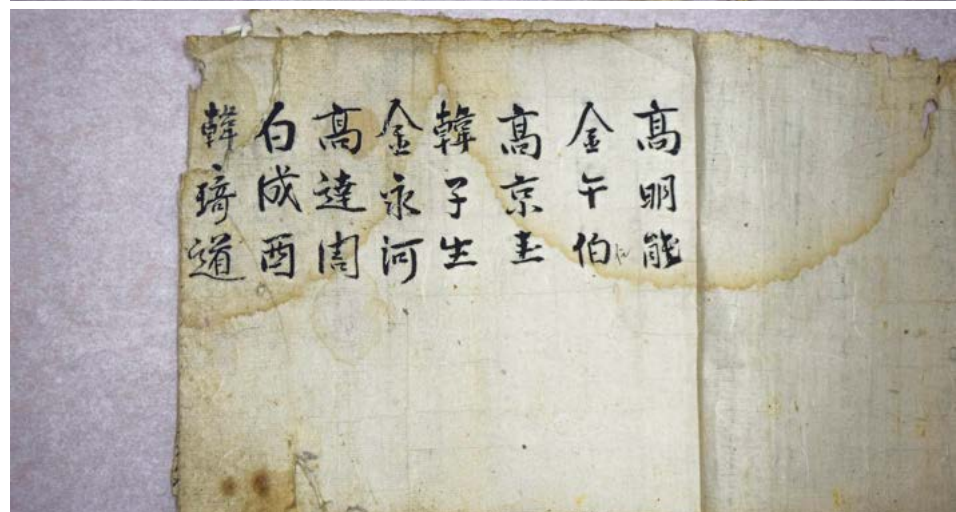 高明能
金午伯
高京圭
韓子生
金永河
高達周
白成酉
韓琦道